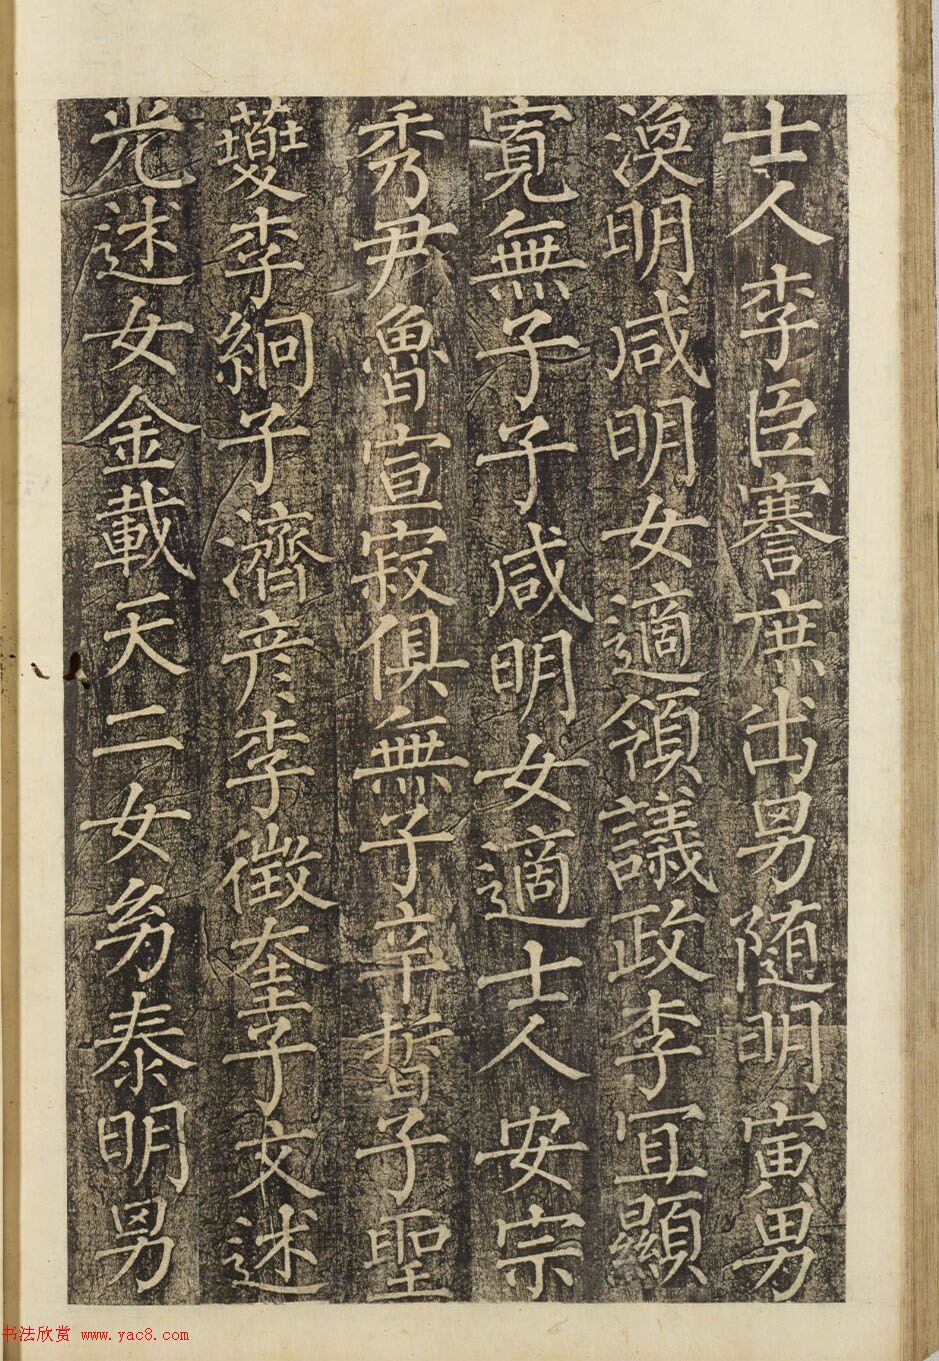 士人李臣謇庶出男隨明寅男
渙明咸明女適領議政李宜顯
寬無子子咸明女適士人安宗
秀尹魯宣寂俱無子辛晳子聖
李絅子濟彦李徵奎子文述
光述女金載天二女幼泰明男
书法欣赏 www.yac8.com